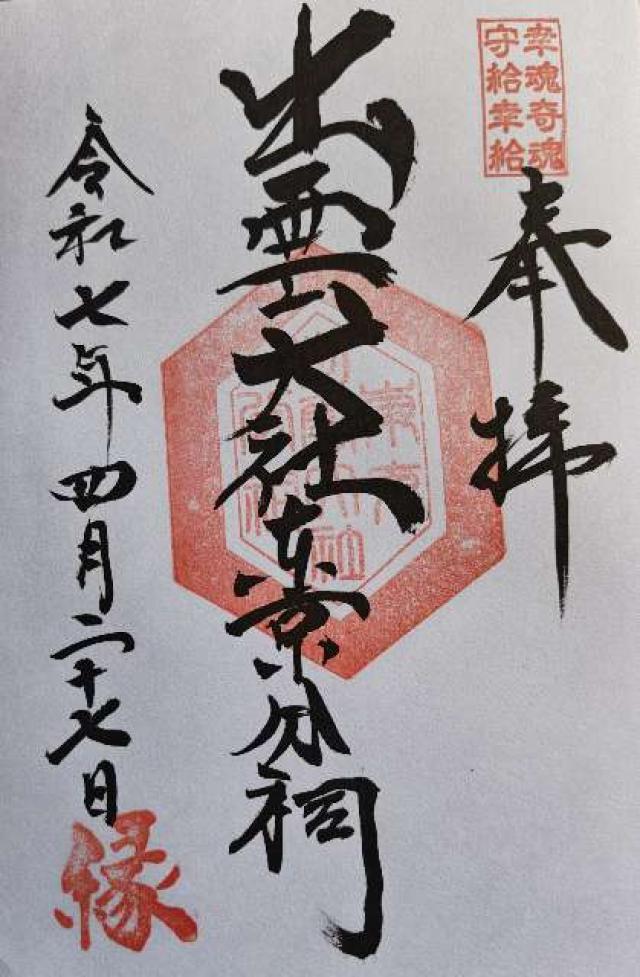 幸魂奇魂
守給幸給
奉拝
出雲大社東京分祠
令和七年四月二十七日
縁